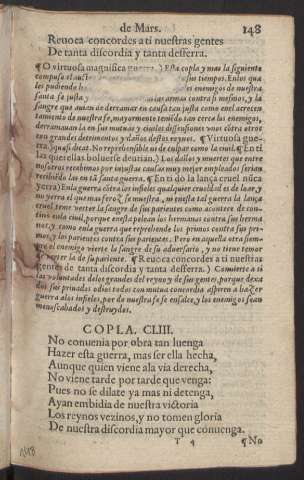 de Mars. 148
Reuoca concordes a ti nuestras gentes
De tanta discordia y tanta desferra.
¶ O virtuosa magnifica guerra.) Esta copla y mas la siguiente
compuso el auct sus tiempos. En los que
les pudiendo h es enemigos de nuestra
santa fe justa y las armas contra si mesmos, y la
sangre que auian de derramar en causa tan justa como en el acrecen
tamiento de nuestra fe, mayormente teniēdo tan cerca los enemigos,
derramauan la en sus mutuas y ciuiles dissensiones vnos cōtra otros
con grandes detrimentos y daños destos reynos. ¶ Virtuosa gue-
rra.) quasi dicat. No reprehensible ni de culpar como la ciuil. ¶ En ti
las querellas boluerse deurian.) Los daños y muertes que entre
nosotros recebimos por injustas causas muy mejor empleado seria
recebirlo en tā sancta guerra. ¶ En ti do la lança cruel nūca
yerra) En la guerra cōtra los infieles qualquier crueldad es de loar, y
no yerra el que mas feroz se muestra, ni en esta tal guerra la lança
cruel teme verter la sangre de sus parientes como acontece de con-
tino en la ciuil, porque en esta pelean los hermanos contra sus herma
nos, y como en la guerra que reprehende los primos contra sus pri-
mos, y los parientes contra sus parientes. Pero en aquella otra siem-
pre el enemigo vierte la sangre de su aduersario, y no tiene temor
de verter la de su pariente. ¶ Reuoca concordes a ti nuestras
gentes de tanta discordia y tanta desferra.) Conuierte a ti
las voluntades de los grandes del reyno y de sus gentes, porque dexa
dos sus priuados odios todos con mutua concordia assieren a hazer
guerra a los infieles, por do nuestra fe se ensalce, y los enemigos sean
menoscabados y destruydos.
COPLA. CLIII.
No conuenia por obra tan luenga
Hazer esta guerra, mas ser ella hecha,
Aunque quien viene a la via derecha,
No viene tarde por tarde que venga:
Pues no se dilate ya mas ni detenga,
Ayan embidia de nuestra victoria
Los reynos vezinos, y no tomen gloria
De nuestra discordia mayor que conuenga.
T 4 ¶ No